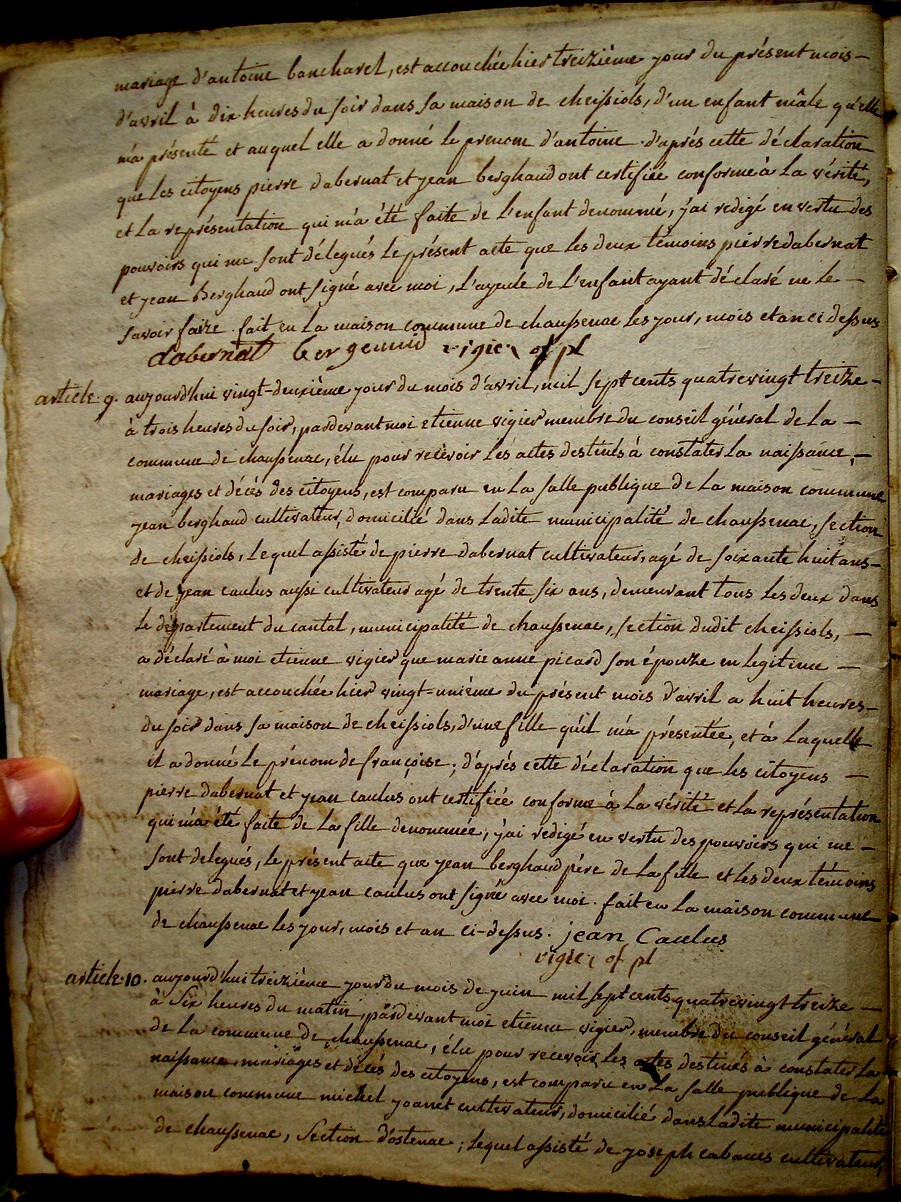 mariage d'antoine bancharel, est accouchée hier treizième jour du présent mois –
d'avril à dix heures du soir dans sa maison de cheissiols, d'un enfant mâle qu'elle
m'a présenté et auquel elle a donné le prenom d'antoine. d'après cette déclaration
que les citoyens pierre dabernat et jean berghaud ont certifiée conforme à la vérité,
et la représentation qui m'a été faite de l'enfant denommé, j'ai redigé en vertu des
pouvoirs qui me sont délegués le présent acte que les deux témoins pierre dabernat
et jean Berghaud ont signé avec moi, l'ayeule de l'enfant ayant déclaré ne le –
savoir faire. fait en la maison commune de chaussenac les jour, mois et an ci dessus
dabernat vigier of. pl
article 9. aujourd'hui vingt-deuxième jour du mois d'avril, mil sept cents quatrevingt treize –
à trois heures du soir, pardevant moi etienne vigier membre du conseil général de la –
commune de chaussenac, élu pour recevoir les actes destinés à constater la naissance, –
mariages et décès des citoyens, est comparu en la salle publique de la maison commune
jean berghaud cultivateur, domicilié dans ladite municipalité de chaussenac, section
de cheissiols, lequel assisté de pierre dabernat cultivateur, agé de soixante huit ans –
et de jean caulus aussi cultivateur agé de trente six ans, demeurant tous les deux dans
le département du cantal, municipalité de chaussenac, section dudit cheissiols, –
a déclaré à moi etienne vigier que marie anne picard son épouze en legitime –
mariage, est accouchée hier vingt-unième du présent mois d'avril a huit heures –
du soir dans sa maison de cheissiols, d'une fille qu'il m'a présentée, et à laquelle
il a donné le prénom de françoise; d'après cette déclaration que les citoyens –
pierre dabernat et jean caulus ont certifiée conforme à la vérité et la représentation
qui m'a été faite de la fille denommée, j'ai redigé en vertu des pouvoirs qui me –
sont delegués, le présent acte que jean berghaud père de la fille et les deux témoins
pierre dabernat et jean caulus ont signé avec moi. fait en la maison commune
de chaussenac les jour, mois et an ci-dessus. jean Caulus
vigier of pl
article 10. aujourd'hui treizième jour du mois de juin mil sept cents quatrevingt treize –
à six heures du matin, pardevant moi etienne vigier, membre du conseil général
de la commune de chaussenac, élu pour recevoir les actes destinés à constater la
naissance, mariages et décès des citoyens, est comparu en la salle publique de la
maison commune michel joanet cultivateur, domicilié dans ladite municipalité
de chaussenac, section d'ostenac; lequel assisté de joseph cabanes cultivateur,